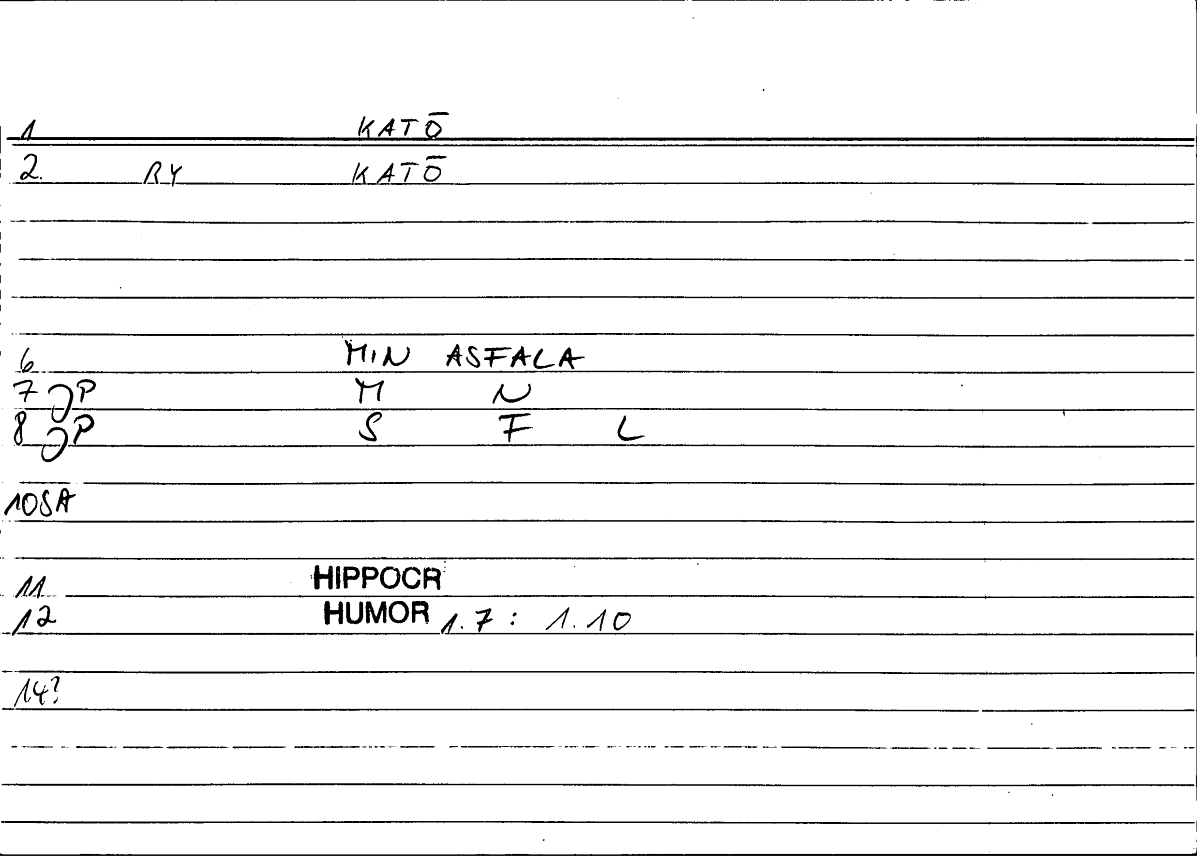 1 KATŌ
2. RY KATŌ
6 MIN ASFALA
7 P M N
8 P S F L
10SA
11 HIPPOCR
12 HUMOR 1.7: 1.10
14?